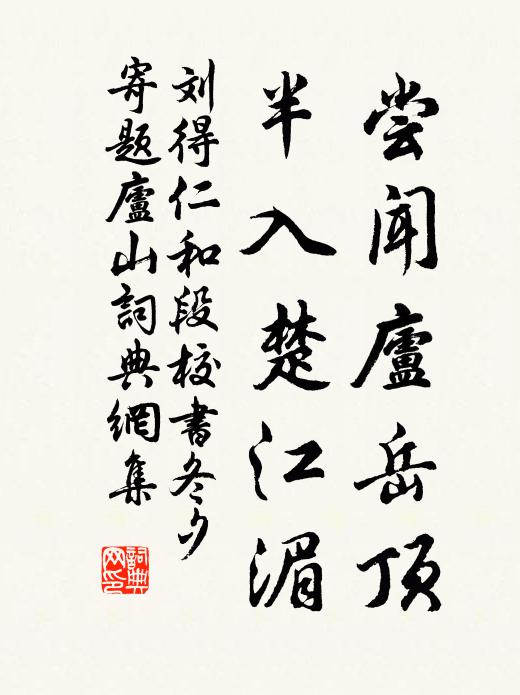 尝闻廬岳顶
半入楚江湄
刘得仁和段校書冬夕
寄题廬山詞典網集
詞典
网印